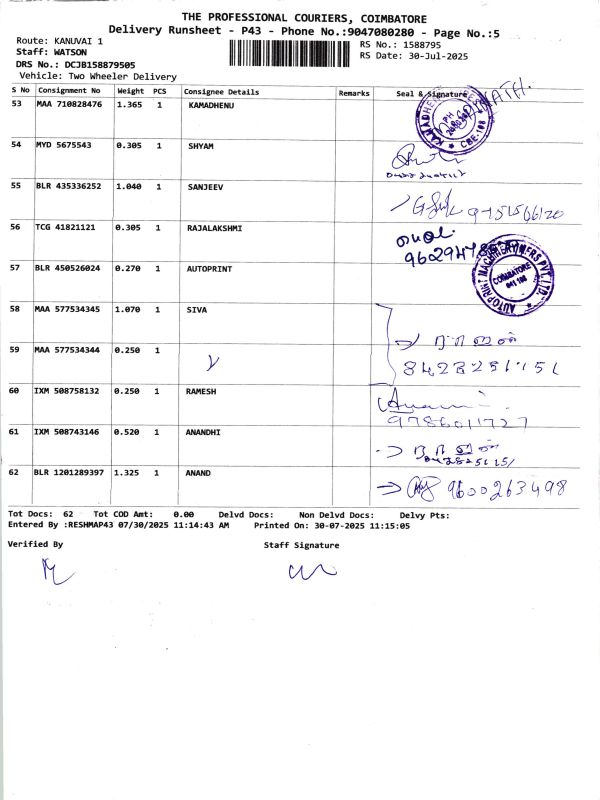 THE PROFESSIONAL COURIERS, COIMBATORE
Delivery Runsheet - P43 - Phone No.:9047080280 - Page No.:5
Route: KANUVAI 1
RS No.: 1588795
Staff: WATSON
RS Date: 30-Jul-2025
DRS No.: DCJB158879505
Vehicle: Two Wheeler Delivery
S No Consignment No Weight PCS Consignee Details Remarks Seal & Signature
53 MAA 710828476 1.365 1 KAMADHENU
54 MYD 5675543 0.305 1 SHYAM
55 BLR 435336252 1.040 1 SANJEEV
56 TCG 41821121 0.305 1 RAJALAKSHMI
57 BLR 450526024 0.270 1 AUTOPRINT
AUTOPRINT MACHINERY MFRS PVT. LTD.
COIMBATORE
641 108
58 MAA 577534345 1.070 1 SIVA
59 MAA 577534344 0.250 1
60 IXM 508758132 0.250 1 RAMESH
9786011727
61 IXM 508743146 0.520 1 ANANDHI
62 BLR 1201289397 1.325 1 ANAND 9600263498
Tot Docs: 62 Tot COD Amt: 0.00 Delvd Docs: Non Delvd Docs: Delvy Pts:
Entered By :RESHMAP43 07/30/2025 11:14:43 AM Printed On: 30-07-2025 11:15:05
Verified By Staff Signature